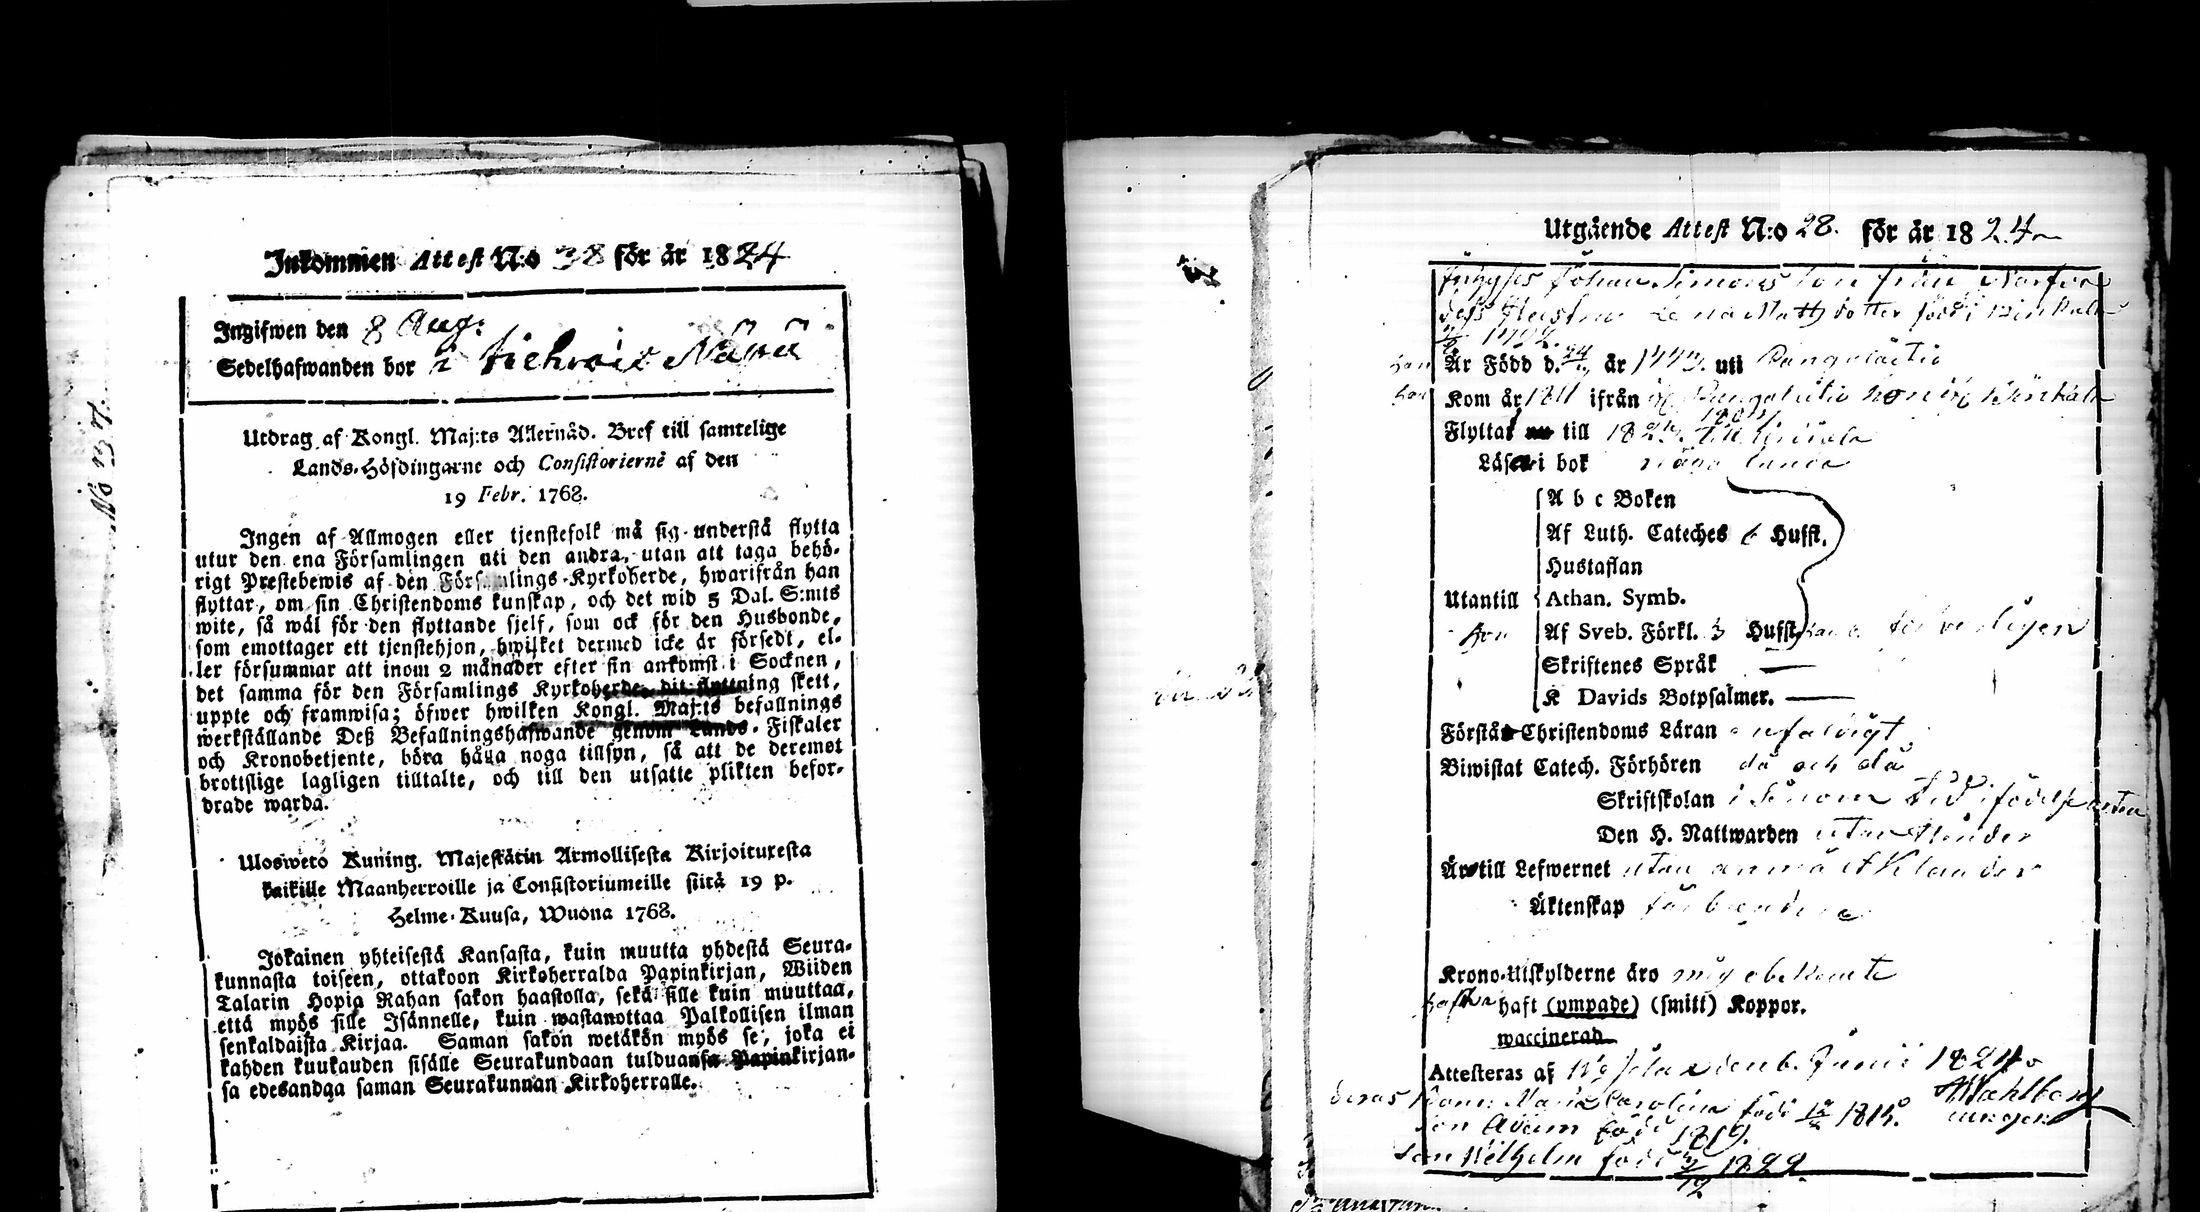 Inkommen Attest N:o 38 för år 1824
Ingifwen den 8 Aug:
Sedelhafwanden bor i
No 137.
Utdrag af Kongl. Maj:ts Allernåd. Bref till samtelige
Lands-Höfdingarne och Consistorierne af den
19 Febr. 1768.
Ingen af Allmogen eller tjenstefolk må sig understå flytta
utur den ena Församlingen uti den andra, utan att taga behö-
rigt Prestebewis af den Församlings-Kyrkoherde, hwarifrån han
flyttar, om sin Christendoms kunskap, och det wid 5 Dal. S:mts
wite, så wäl för den flyttande sjelf, som ock för den Husbonde,
som emottager ett tjenstehjon, hwilket dermed icke är försedt, el-
ler försummar att inom 2 månader efter sin ankomst i Socknen,
det samma för den Församlings Kyrkoherde, dit flyttning skett,
uppte och framwisa; öfwer hwilken Kongl. Maj:ts befallnings
werkställande Deß Befallningshafwande genom Lands-Fiskaler
och Kronobetjente, böra hålla noga tillsyn, så att de deremot
brottslige lagligen tilltalte, och till den utsatte plikten befor-
drade warda.
Ulosweto Kuning. Majestätin Armollisesta Kirjoituxesta
kaikille Maanherroille ja Consistoriumeille siitä 19 p.
Helme-Kuusa, Wuona 1768.
Jokainen yhteisestä Kansasta, kuin muutta yhdestä Seura-
kunnasta toiseen, ottakoon Kirkoherralda Papinkirjan, Wiiden
Talarin Hopia Rahan sakon haastolla, sekä sille kuin muuttaa,
että myös sille Isännelle, kuin wastanottaa Palkollisen ilman
senkaldaista Kirjaa. Saman sakon wetäkön myös se, joka ei
kahden kuukauden sisälle Seurakundaan tulduansa Papinkirjan-
sa edesandga saman Seurakunnan Kirkoherralle.
Utgående Attest N:o 28. för år 1824
Inhyses Johan Simons son från
dess Hustru Lena Matts dotter född i
Är Född d. 24 år uti
Kom år 1811 ifrån
Flyttar nu till 182
Läser i bok
A b c Boken
Af Luth. Cateches 6 Hufst.
Hustaflan
Utantill Athan. Symb.
Af Sveb. Förkl. 3 Hufst.
Skriftenes Språk
K Davids Botpsalmer.
Förstår Christendoms Läran enfaldigt
Biwistat Catech. Förhören då och då
Skriftskolan i
Den H. Nattwarden utan hinder
Är till Lefwernet utan anmärkt klander
Äktenskap förbundne
Krono-Utskylderne äro mig obekante
hafwa haft (ympade) (smitt) Koppor.
waccinerad
Attesteras af den 6. Junii 1824
deras Barn: Maria Carolina född 1814. Wahlberg
son Adam född 1819.
son Wilhelm född 1822